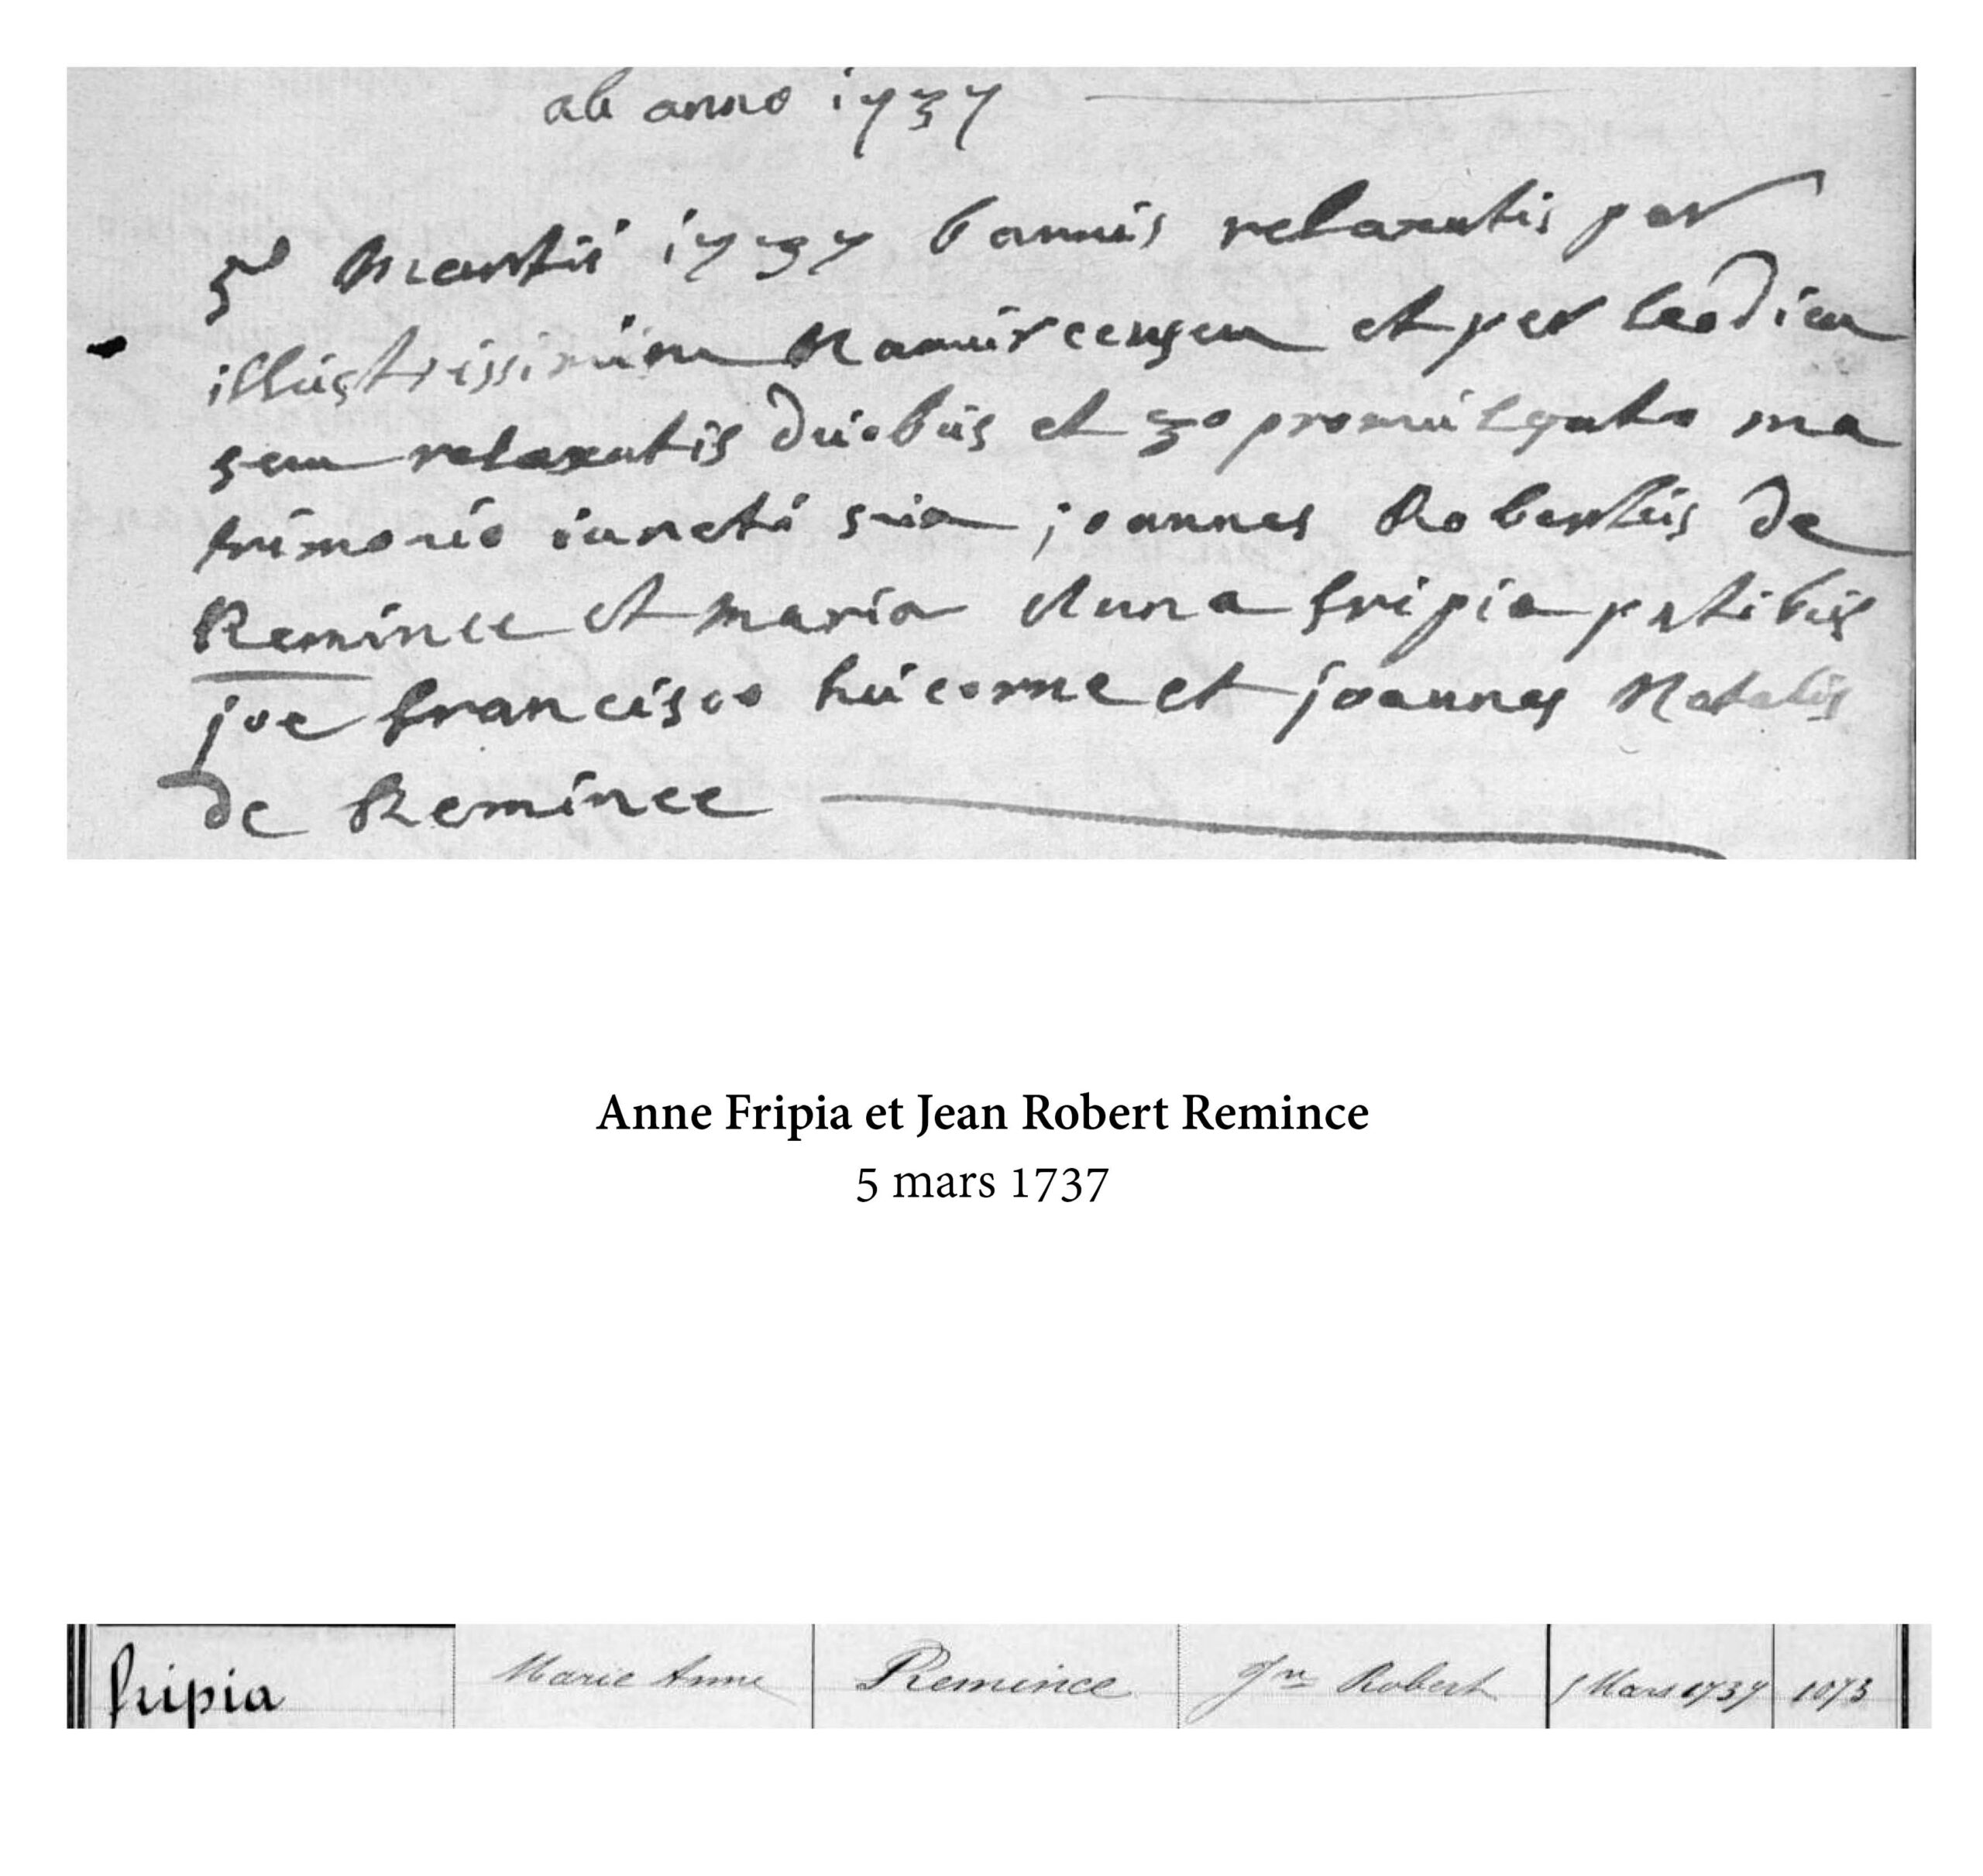 ab anno 1737
5a Martii 1737 bannis relaxatis per
illustrissimum Namurcensem et per leodien
sem relaxatis duobus et 3o promulgato ma
trimonio iuncti sun joannes Robertus de
Remince et maria Anna fripia pntibus
joe francisco hucorne et joannes Natalis
de Remince
Anne Fripia et Jean Robert Remince
5 mars 1737
fripia Marie Anne Remince Jn Robert 5 Mars 1737 1073